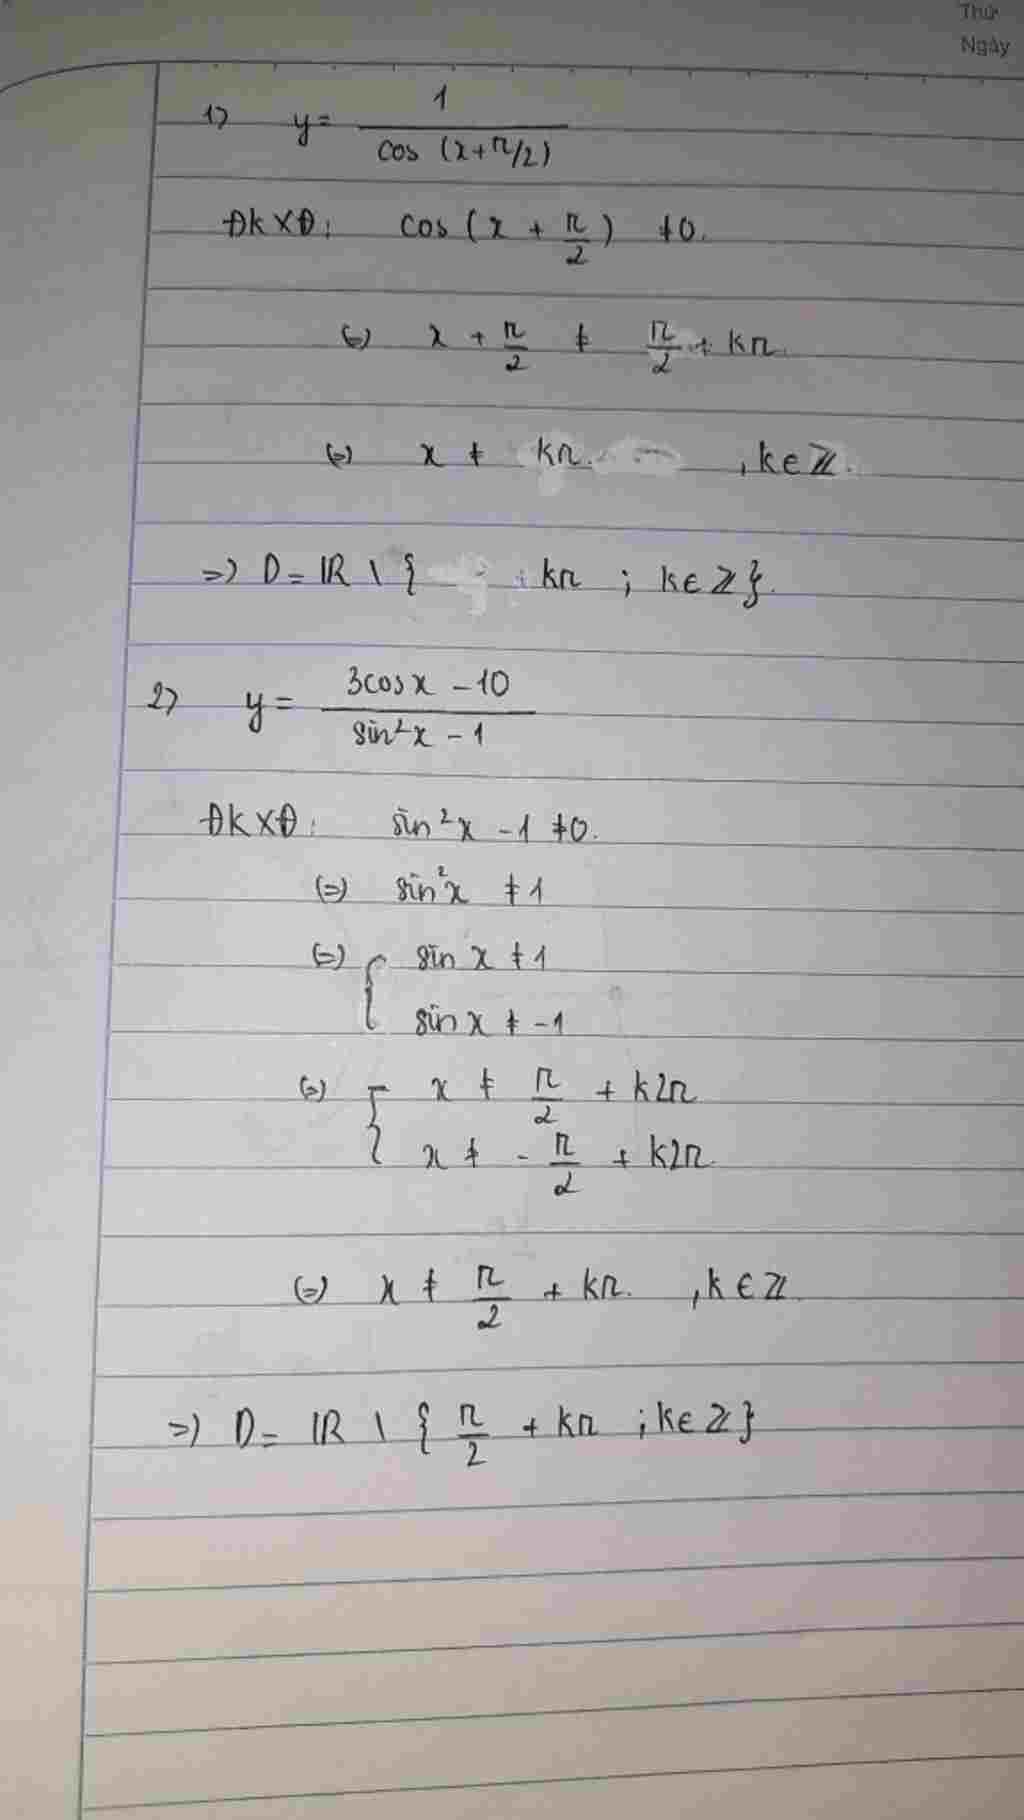 Thứ
Ngày
1) y = 1 / cos (x + π/2)
ĐKXĐ: cos (x + π/2) ≠ 0.
(=) x + π/2 ≠ π/2 + kπ.
(=) x ≠ kπ. , k ∈ ℤ.
=) D = ℝ \ { kπ ; k ∈ ℤ }.
2) y = (3cosx - 10) / (sin²x - 1)
ĐKXĐ: sin²x - 1 ≠ 0.
(=) sin²x ≠ 1
(=) { sin x ≠ 1
sin x ≠ -1
(=) { x ≠ π/2 + k2π
x ≠ - π/2 + k2π.
(=) x ≠ π/2 + kπ. , k ∈ ℤ.
=) D = ℝ \ { π/2 + kπ ; k ∈ ℤ }